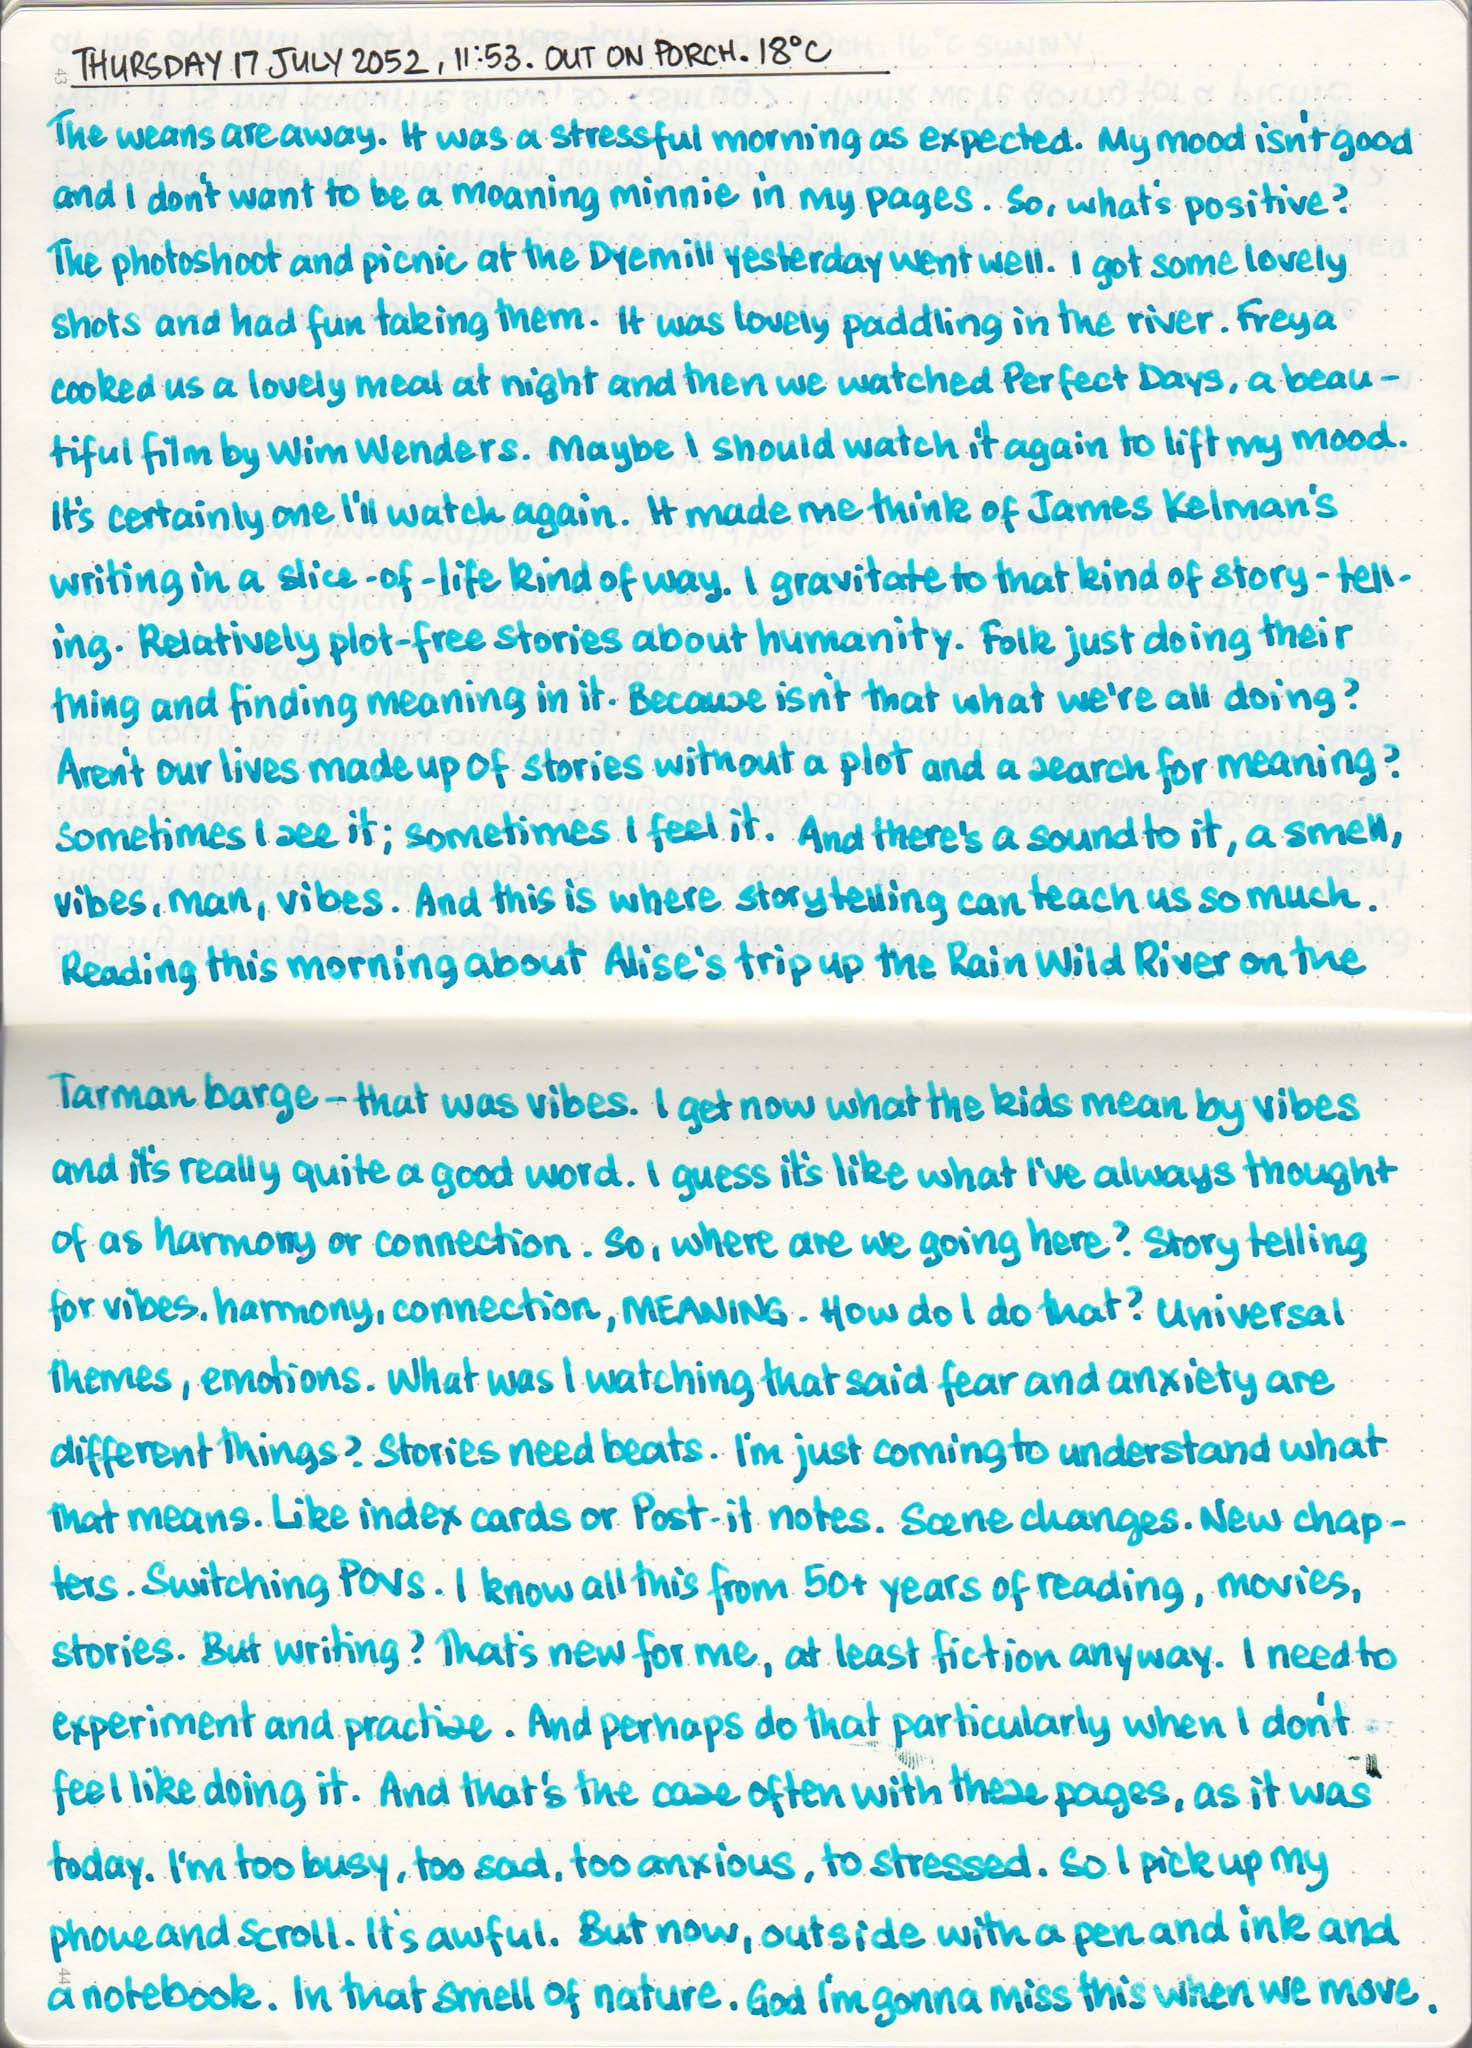 THURSDAY 17 JULY 2052, 11:53. OUT ON PORCH. 18°C
The weans are away. It was a stressful morning as expected. My mood isn't good
and I don't want to be a moaning minnie in my pages. So, what's positive?
The photoshoot and picnic at the Dyemill yesterday went well. I got some lovely
shots and had fun taking them. It was lovely paddling in the river. Freya
cooked us a lovely meal at night and then we watched Perfect Days, a beau-
tiful film by Wim Wenders. Maybe I should watch it again to lift my mood.
It's certainly one I'll watch again. It made me think of James Kelman's
writing in a slice-of-life kind of way. I gravitate to that kind of story-tell-
ing. Relatively plot-free stories about humanity. Folk just doing their
thing and finding meaning in it. Because isn't that what we're all doing?
Aren't our lives made up of stories without a plot and a search for meaning?
Sometimes I see it; sometimes I feel it. And there's a sound to it, a smell,
vibes, man, vibes. And this is where storytelling can teach us so much.
Reading this morning about Alise's trip up the Rain Wild River on the
Tarman barge - that was vibes. I get now what the kids mean by vibes
and it's really quite a good word. I guess it's like what I've always thought
of as harmony or connection. So, where are we going here? Story telling
for vibes, harmony, connection, MEANING. How do I do that? Universal
themes, emotions. What was I watching that said fear and anxiety are
different things? Stories need beats. I'm just coming to understand what
that means. Like index cards or Post-it notes. Scene changes. New chap-
ters. Switching POVs. I know all this from 50+ years of reading, movies,
stories. But writing? That's new for me, at least fiction anyway. I need to
experiment and practise. And perhaps do that particularly when I don't
feel like doing it. And that's the case often with these pages, as it was
today. I'm too busy, too sad, too anxious, to stressed. So I pick up my
phone and scroll. It's awful. But now, outside with a pen and ink and
a notebook. In that smell of nature. God I'm gonna miss this when we move.
43
44